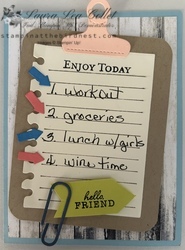 Laura Lea Bellet
stampinatthestfidnest.com
Stampin' Up!
ENJOY TODAY
1. workout
2. groceries
3. lunch w/girls
4. wine time
hello
FRIEND